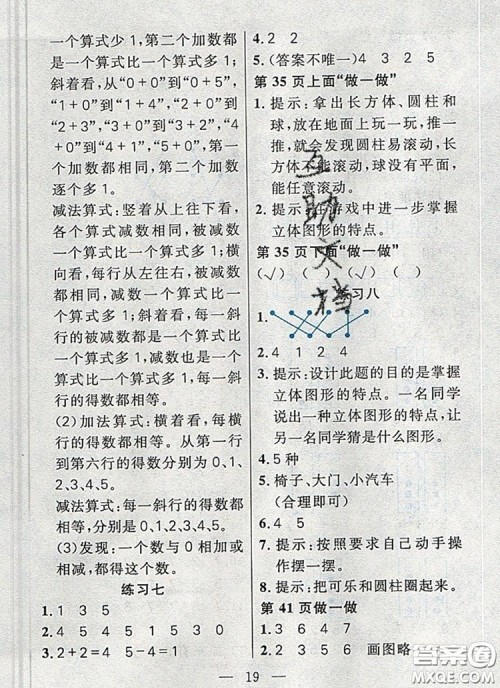 一个算式少1,第二个加数都
是一个算式比一个算式多1;
斜着看,从“0+0”到“5+0”,
“1+0”到“4+1”,“2+0”到
“2+3”,“3+0”到“3+2”,“4
+0”到“4+1”,“5+0”,第一
个加数都相同,第二个加数
逐个多1。
减法算式:竖着从上往下看,
各个算式减数相同,被减数
一个算式比一个算式多1;横
向看,每行从左往右,被减数
都相同,减数一个算式比一
个算式多1;斜着看,每一斜
行的被减数都是一个算式
比一个算式多1,减数也是一
个算式比一个算式多1,每一斜
行的得数都相等。
(2)加法算式:横着看,每一
横行的得数都相等。从第一行
到第六行的得数分别为0、1、
2、3、4、5。
减法算式:每一斜行的得数都
相等,分别是0、1、2、3、4、5。
(3)发现:一个数与0相加或
相减,都得这个数。
练习七
1.1 3 5
2.4 5 4 5 1 5 3 0
3.2+2=4 5-4=1
4.2 2
5.(答案不唯一)4 3 2 5
第35页上面“做一做”
1.提示:拿出长方体、圆柱和
球,放在地面上玩一玩,推一
推,就会发现圆柱易滚动,长
方体不能滚动,球没有平面,
能任意滚动。
2.提示:在游戏中进一步掌握
立体图形的特点。
第35页下面“做一做”
(√)(√)( )( )
练习八
1.
2.4 1 2 4
3.提示:设计此题的目的是掌握
立体图形的特点。一名同学
说出一种立体图形的特点,让
另一名同学猜是什么图形。
4.5种
5.椅子、大门、小汽车
(合理即可)
6.4 5
7.提示:按照要求自己动手操
作摆一摆。
8.提示:把可乐和圆柱圈起来。
第41页做一做
1.3 6 4 7
2.2 3 5 6 画图略
互助文档
19
答案圈
MXQE.COM